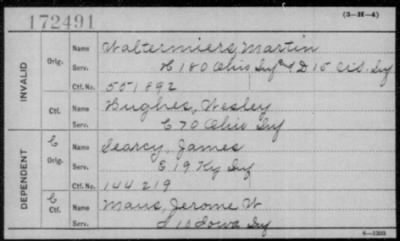 172491 (3-H-4)
INVALID Orig. Name Waltermiers, Martin
Serv. H 180 Ohio Inf & D 15 Ind. Inf
Ctf. No. 551892
Ctf. Name Hughes, Wesley
Serv. C 70 Ohio Inf
DEPENDENT C Orig. Name Searcy, James
Serv. E 19 Ky Inf
Ctf. No. 144219
C Ctf. Name Maus, Jerome W
Serv. Iowa Inf